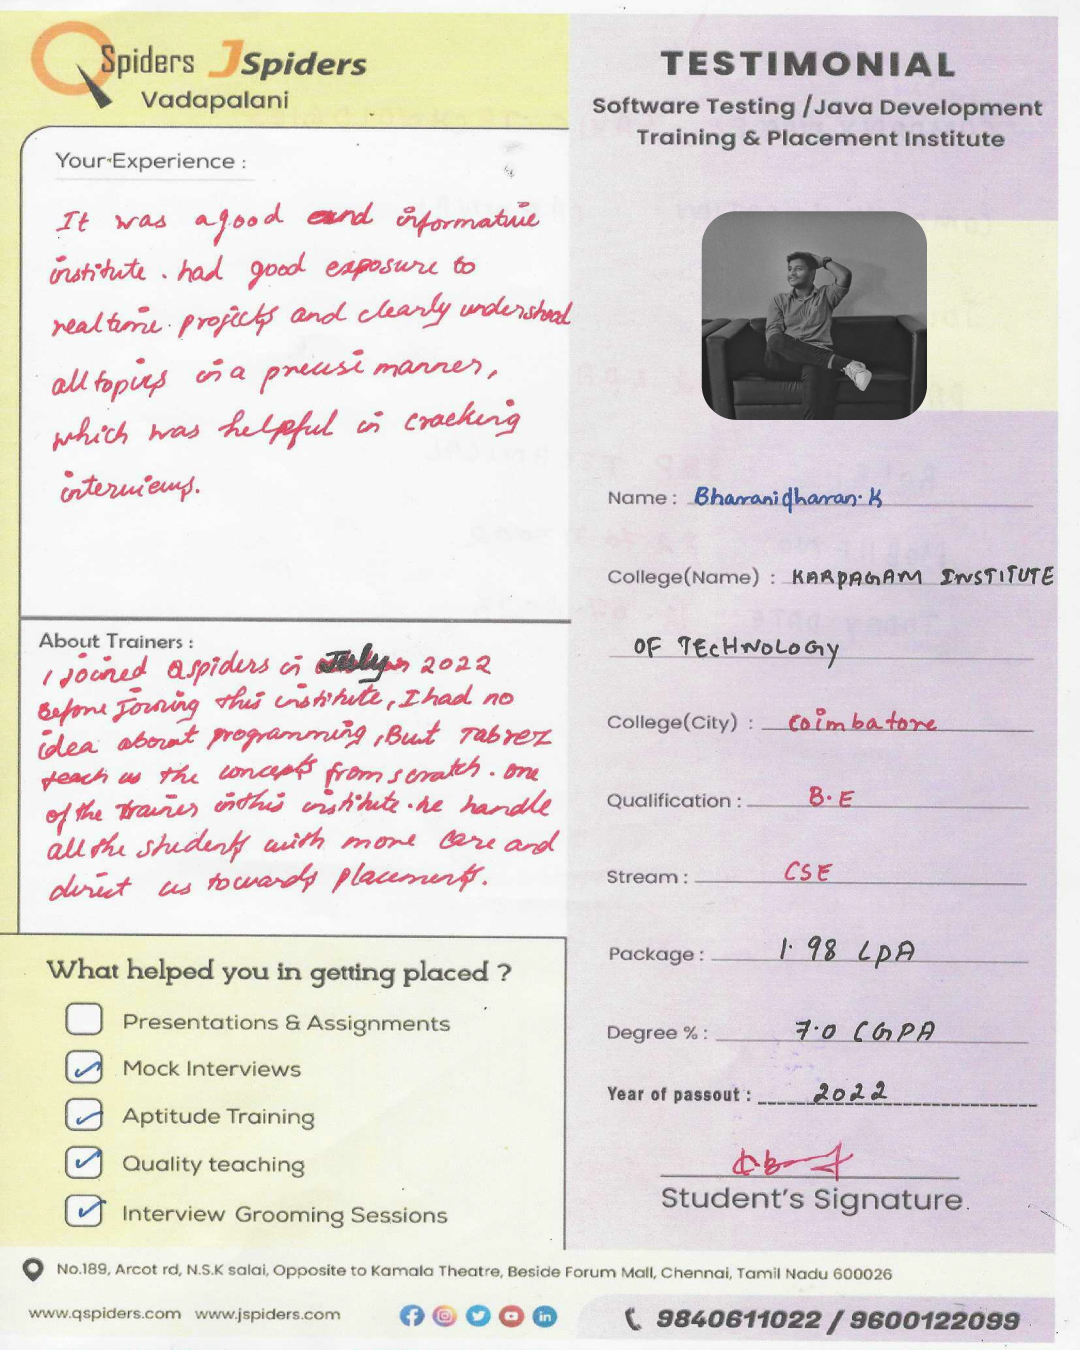 QSpiders JSpiders
Vadapalani
TESTIMONIAL
Software Testing /Java Development
Training & Placement Institute
Your Experience :
It was a good and informative
institute. had good exposure to
realtime projects and clearly understood
all topics in a precise manner,
which was helpful in cracking
interviews.
About Trainers :
I joined Qspiders in July 2022
Before joining this institute, I had no
idea about programming, But Tabrez
teach us the concepts from scratch. one
of the trainer in this institute. he handle
all the students with more care and
direct us towards placements.
What helped you in getting placed ?
Presentations & Assignments
Mock Interviews
Aptitude Training
Quality teaching
Interview Grooming Sessions
Name : Bharanidharan. K
College(Name) : KARPAGAM INSTITUTE
OF TECHNOLOGY
College(City) : Coimbatore
Qualification : B.E
Stream : CSE
Package : 1.98 LPA
Degree % : 7.0 CGPA
Year of passout : 2022
Student's Signature
No.189, Arcot rd, N.S.K salai, Opposite to Kamala Theatre, Beside Forum Mall, Chennai, Tamil Nadu 600026
www.qspiders.com www.jspiders.com
9840611022 / 9600122099